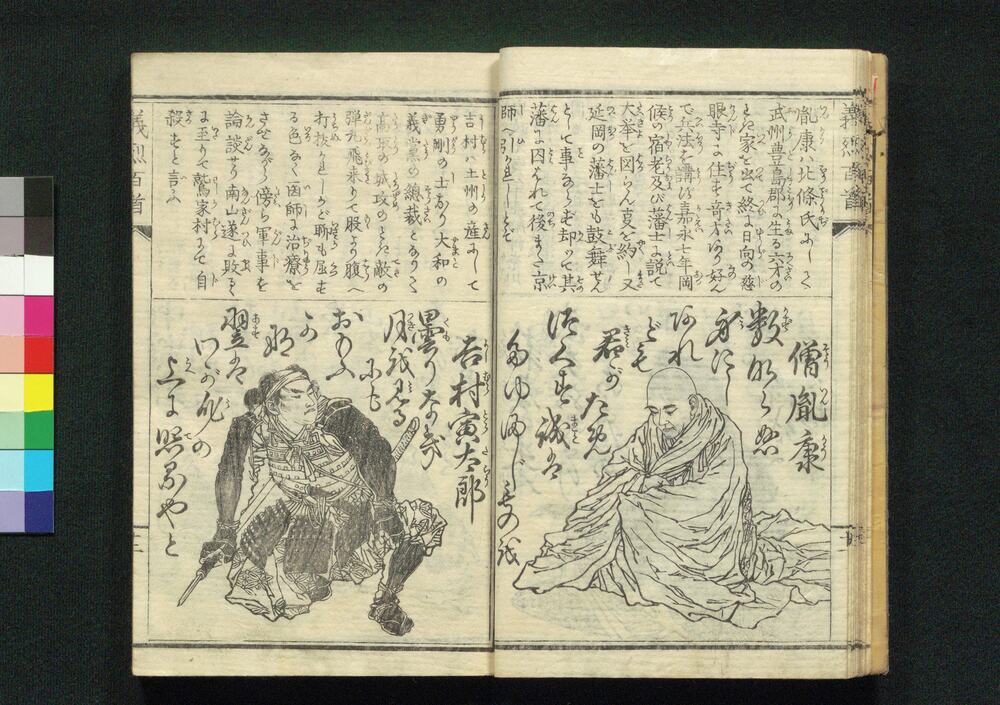 義烈百首
胤康ハ北條氏にして
武州豊島郡に生る六才の
とき家を出て終に日向の慈
眼寺に住す奇才あり好ん
で兵法を講ず嘉永七年岡
候の宿老及び藩士に説て
大挙を図らん真を約し又
延岡の藩士をも鼓舞せん
として事ならず却つて其
藩に囚はれて後また京
師へ引かれしとぞ
僧胤康
数ならぬ
身にし
あれ
ども
君が
ため
つくす誠は
たゆまじものを
吉村ハ土州の産にして
勇剛の士なり大和の
義党の総裁となりて
高取の城攻のとき敵の
弾丸飛来りて股より腹へ
打抜かれしかど聊も屈す
る色なく歯師に治療を
させながら傍ら軍事を
論談せり南山遂に敗る
に至りて鷲家村にて自
殺すと言ふ
吉村寅太郎
曇りなき
月を見る
にも
おもふ
か
な
翌は
わが身の
上に照るやと
義烈百首